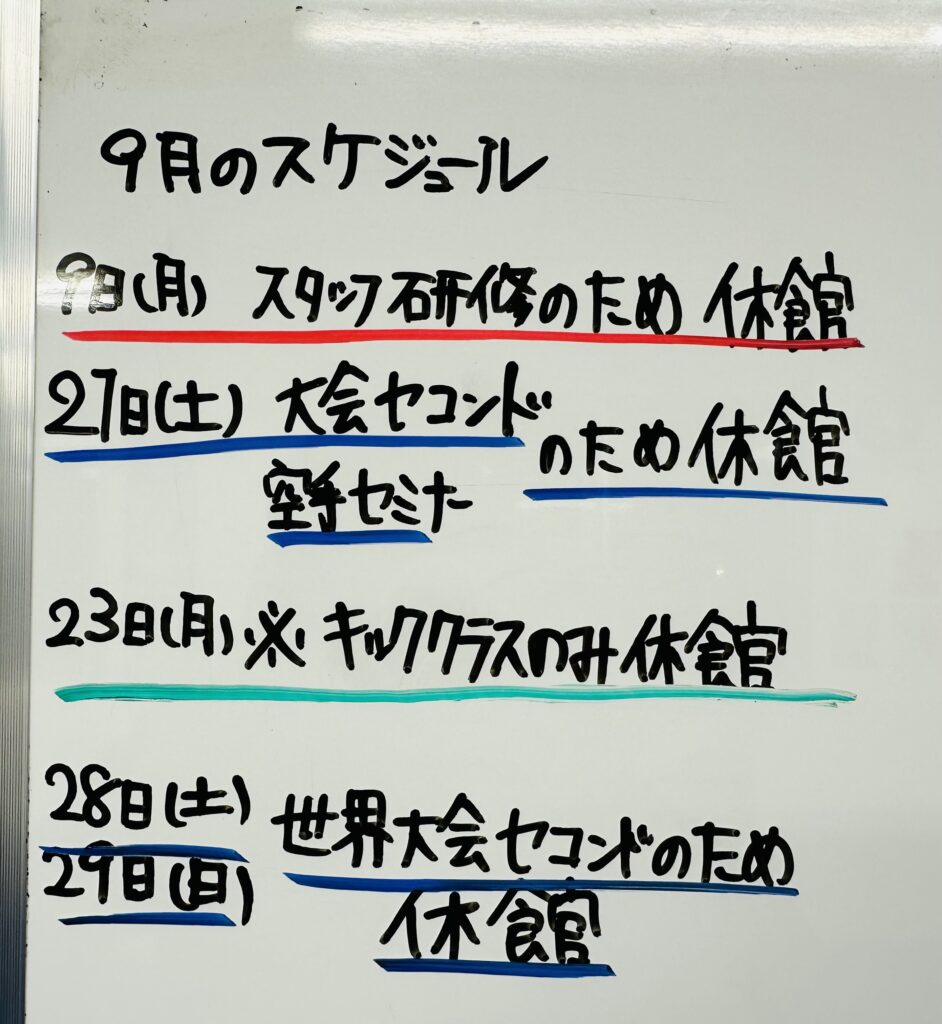 9月のスケジュール
9日(月) スタッフ研修のため 休館
21日(土) 大会セコンド のため休館
空手セミナー
23日(月)※キッククラスのみ休館
28日(土)
29日(日)
世界大会セコンドのため
休館